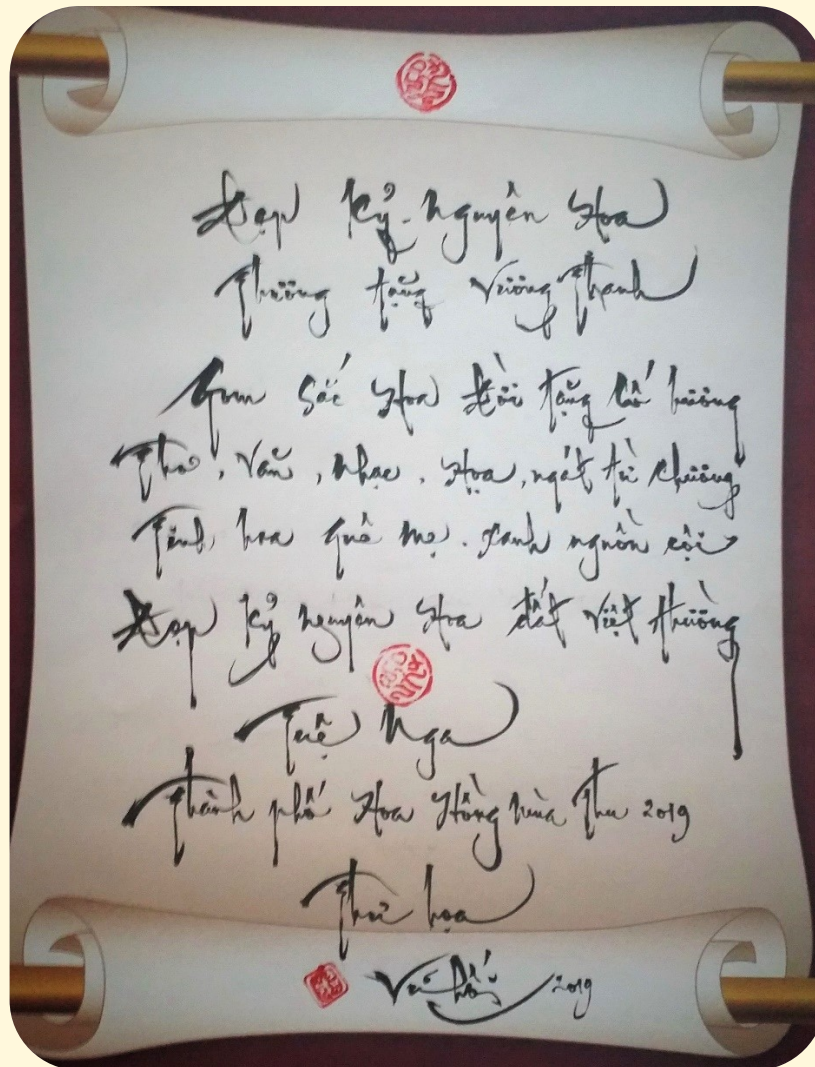 Đẹp Kỷ Nguyên Hoa
Thương tặng Vương Thanh
Gom Sắc Hoa Đời tặng Cố hương
Thơ, Văn, Nhạc, Họa, ngát từ chương
Tinh hoa Quê Mẹ. Xanh nguồn cội
Đẹp Kỷ nguyên Hoa đất Việt thường
Tuệ Nga
Thành phố Hoa Hồng Mùa Thu 2019
Thư họa
Vũ Hối 2019